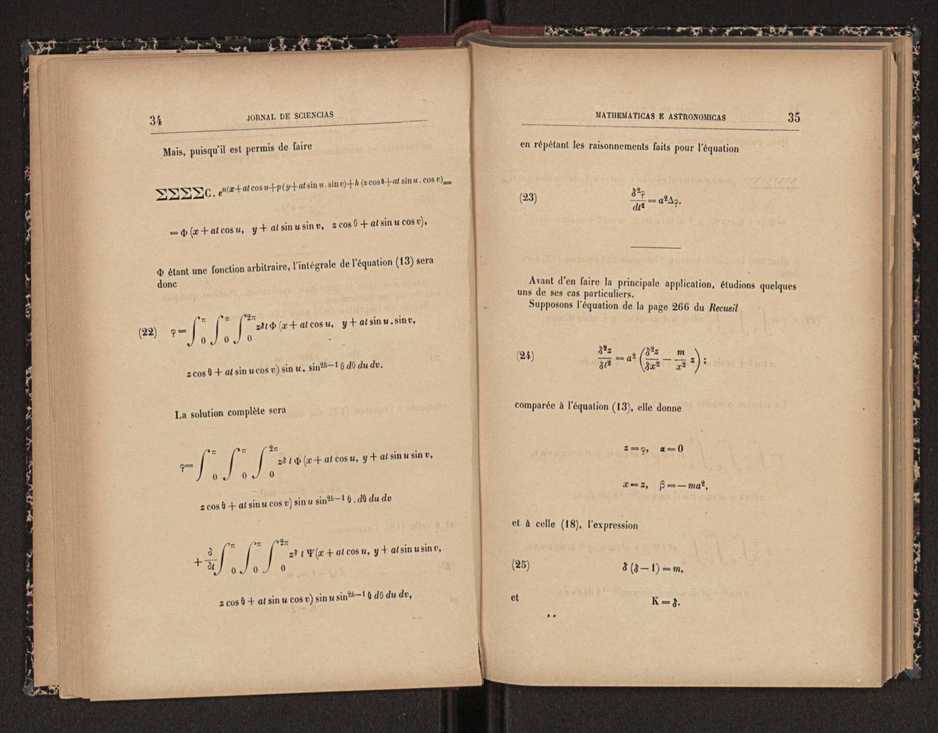 34 JORNAL DE SCIENCIAS
Mais, puisqu'il est permis de faire
ΣΣΣΣC. e^{n(x+at cos u+p(y+at sin u. sin v)+h (z cos θ+at sin u. cos v)} =
= Φ (x + at cos u, y + at sin u sin v, z cos θ + at sin u cos v),
Φ étant une fonction arbitraire, l'intégrale de l'équation (13) sera
donc
(22) φ = ∫_0^π ∫_0^π ∫_0^{2π} z^δ t Φ (x + at cos u, y + at sin u. sin v,
z cos θ + at sin u cos v) sin u. sin^{2δ—1} θ dθ du dv.
La solution complète sera
φ = ∫_0^π ∫_0^π ∫_0^{2π} z^δ t Φ (x + at cos u, y + at sin u sin v,
z cos θ + at sin u cos v) sin u sin^{2δ—1} θ. dθ du dv
+ δ/δt ∫_0^π ∫_0^π ∫_0^{2π} z^δ t Ψ (x + at cos u, y + at sin u sin v,
z cos θ + at sin u cos v) sin u sin^{2δ—1} θ dθ du dv,
MATHEMATICAS E ASTRONOMICAS 35
en répétant les raisonnements faits pour l'équation
(23) δ²φ/dt² = a²Δφ.
Avant d'en faire la principale application, étudions quelques
uns de ses cas particuliers.
Supposons l'équation de la page 266 du Recueil
(24) δ²z/δt² = a² (δ²z/δx² — m/x² z) ;
comparée à l'équation (13), elle donne
z = φ, α = 0
x = z, β = — ma²,
et à celle (18), l'expression
(25) δ (δ — 1) = m,
et K = δ.